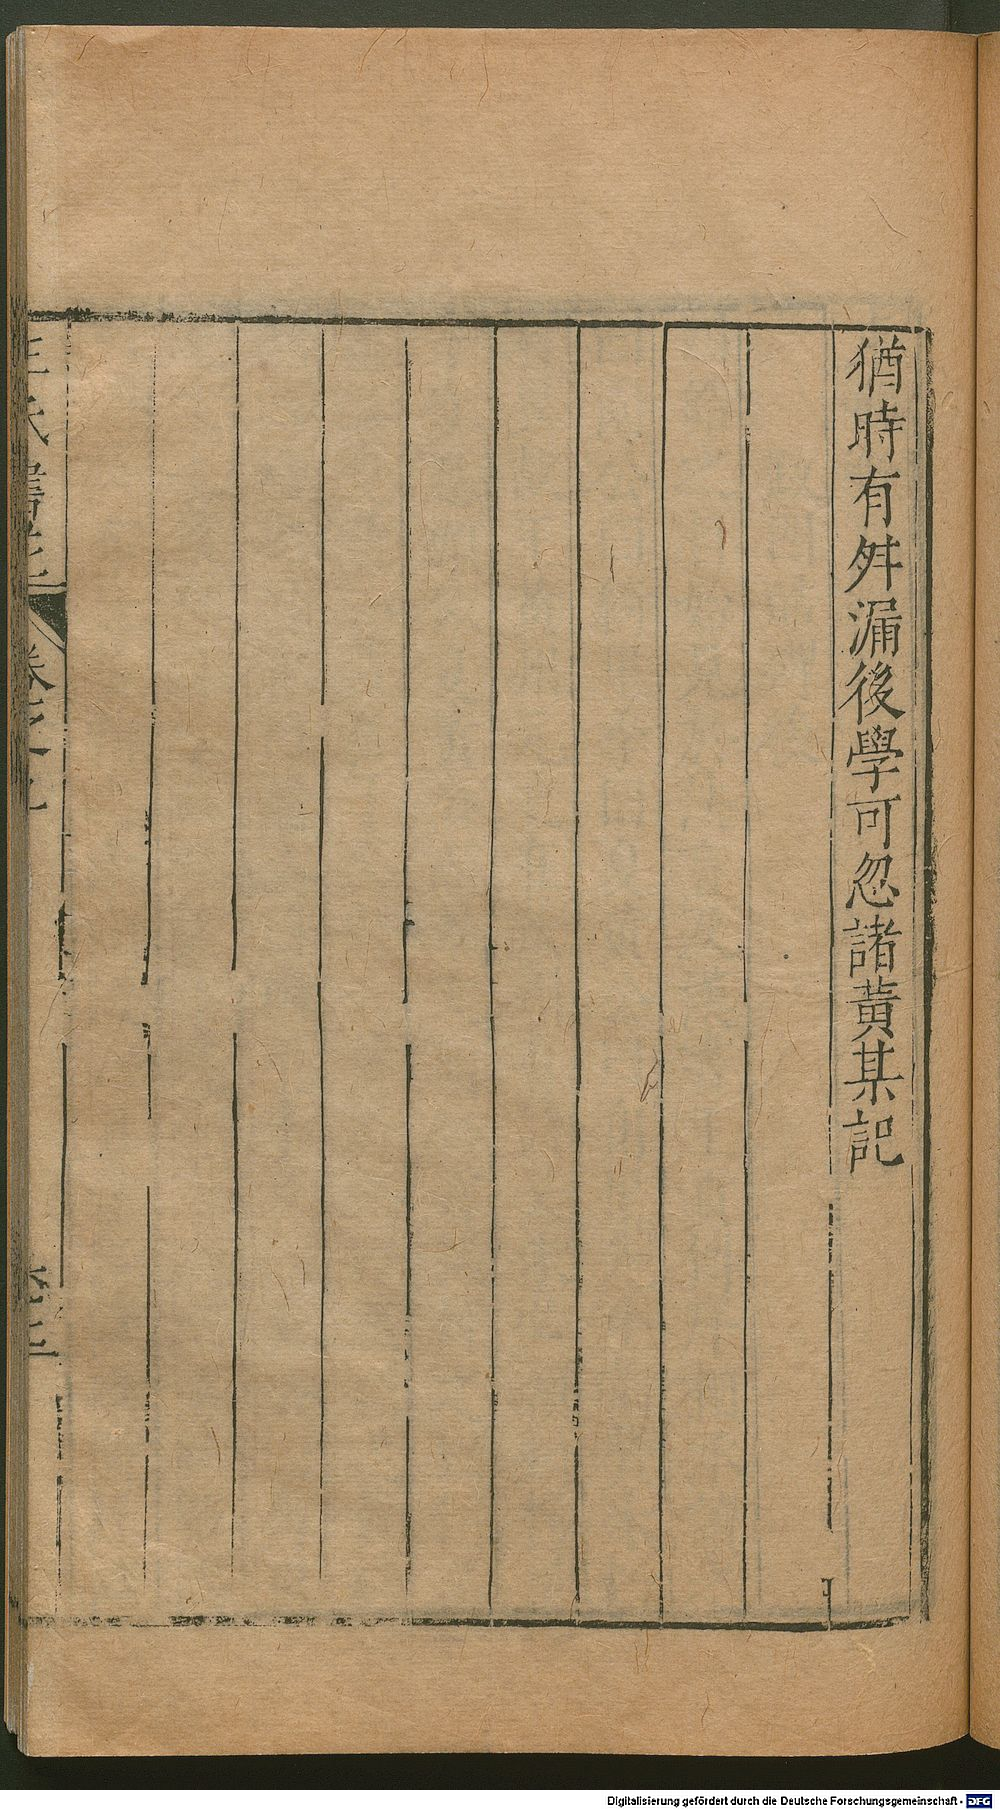 猶時有舛漏後學可忽諸黃某記
王氏書苑
卷之
Digitalisierung gefördert durch die Deutsche Forschungsgemeinschaft - DFG